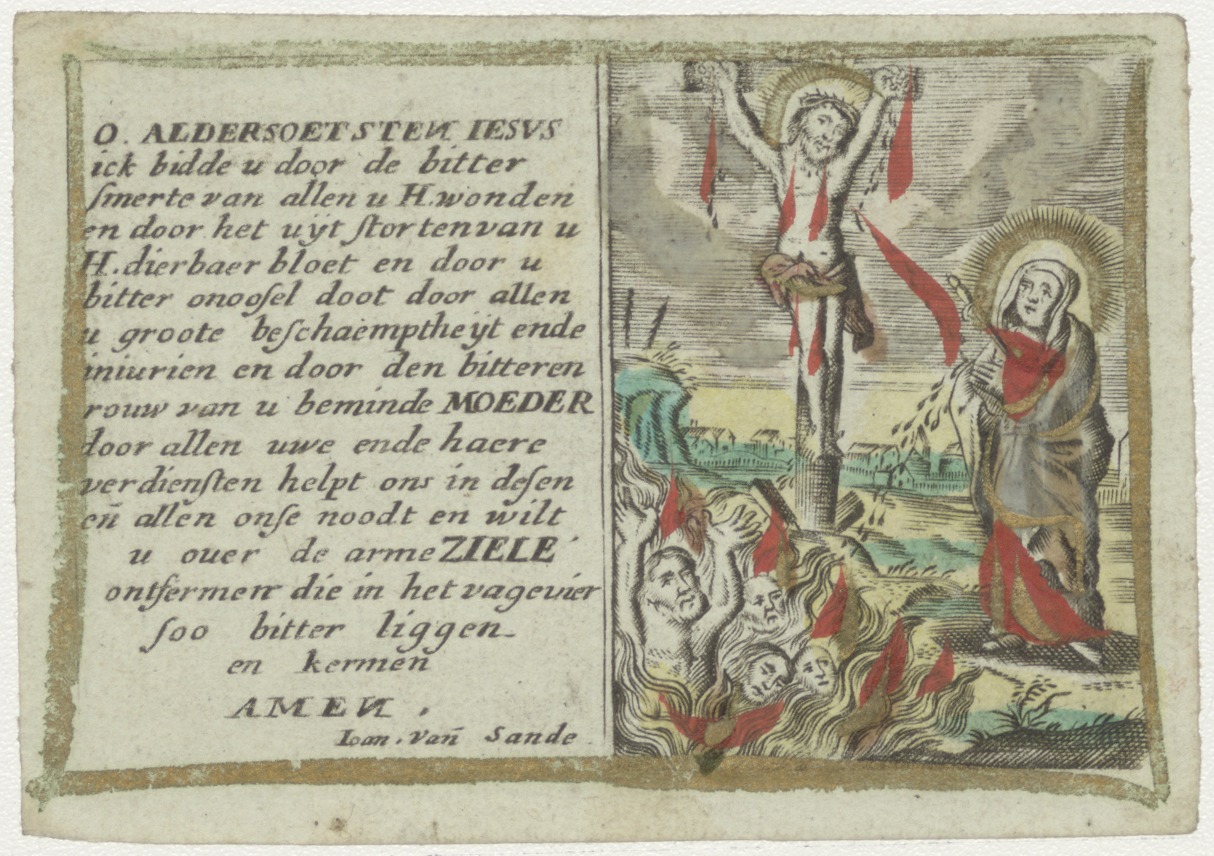 O. ALDERSOETSTEN IESVS
ick bidde u door de bitter
ſmerte van allen u H. wonden
en door het uÿt ſtorten van u
H. dierbaer bloet en door u
bitter onooſel doot door allen
u groote beſchaemptheÿt ende
iniurien en door den bitteren
rouw van u beminde MOEDER
door allen uwe ende haere
verdienſten helpt ons in deſen
en̄ allen onſe noodt en wilt
u ouer de arme ZIELE
ontfermen die in het vagevier
ſoo bitter liggen
en kermen
AMEN.
Ioan. van Sande